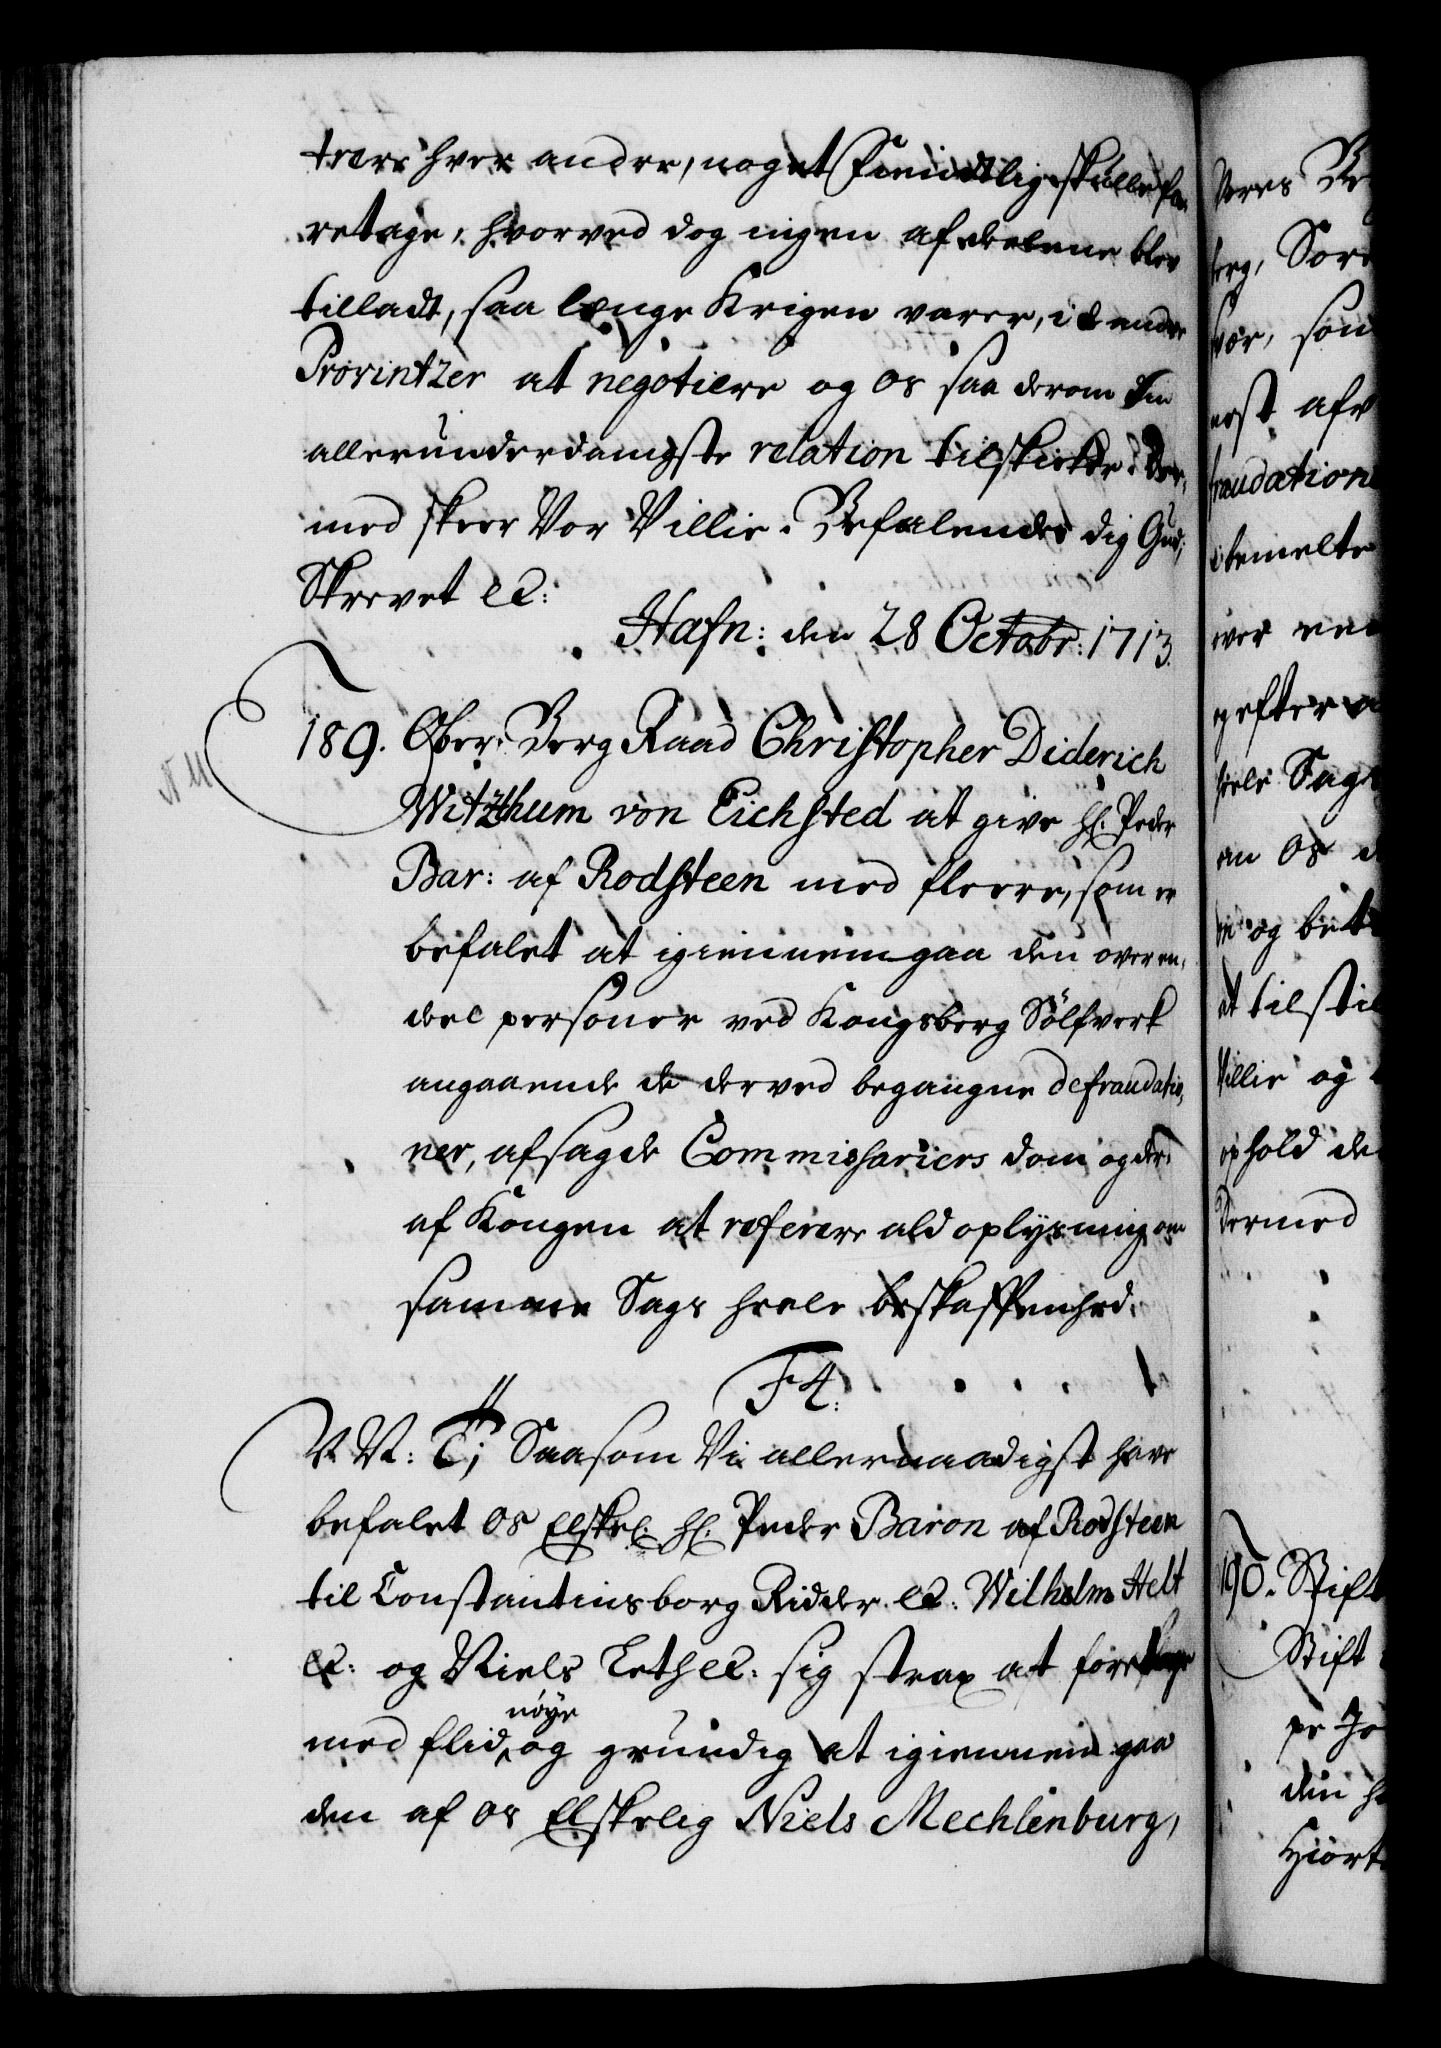 tvers hver andre, noget Fiendtlig skulle fo-
retage, hvorved dog ingen af deelene blev
tilladt, saa længe Krigen varer, i de andre
Provintzer at negotiere og os saa derom din
allerunderdanigste relation tilskikke. Der,
med skeer Vor Villie. Befalendes dig Gud,
Skrevet etc:
Hafn: den 28 Octobr: 1713.
189. Ober Berg Raad Christopher Diderich
Witzthum von Eichsted at give hr. Peder
Bar: af Rodsteen med fleere, som er
befalet at igiennemgaa den over en,
deel personer ved Kongsberg Sölfverk
angaaende de derved begangne defraudatio,
ner, afsagde Commissariers dom og der,
af Kongen at referere ald oplysning om
samme Sags heele beskaffenhed.
F4.
V V: T; Saasom Vi allernaadigst have
befalet os Elskel: hr. Peder Baron af Rodsteen
til Constantinsborg Ridder etc: Wilhelm Helt
etc: og Niels etc: sig strax at foretage
med flid, nöye og grundig at igiennemgaa
den af os Elskelig Niels Mechlenburg,
Vores
berg,
som
frandation
bemelte
over
efter
heele Sag
en os
og
at
Villie og
ophold
Dermed
190. Stift
Stift
den
Hiort